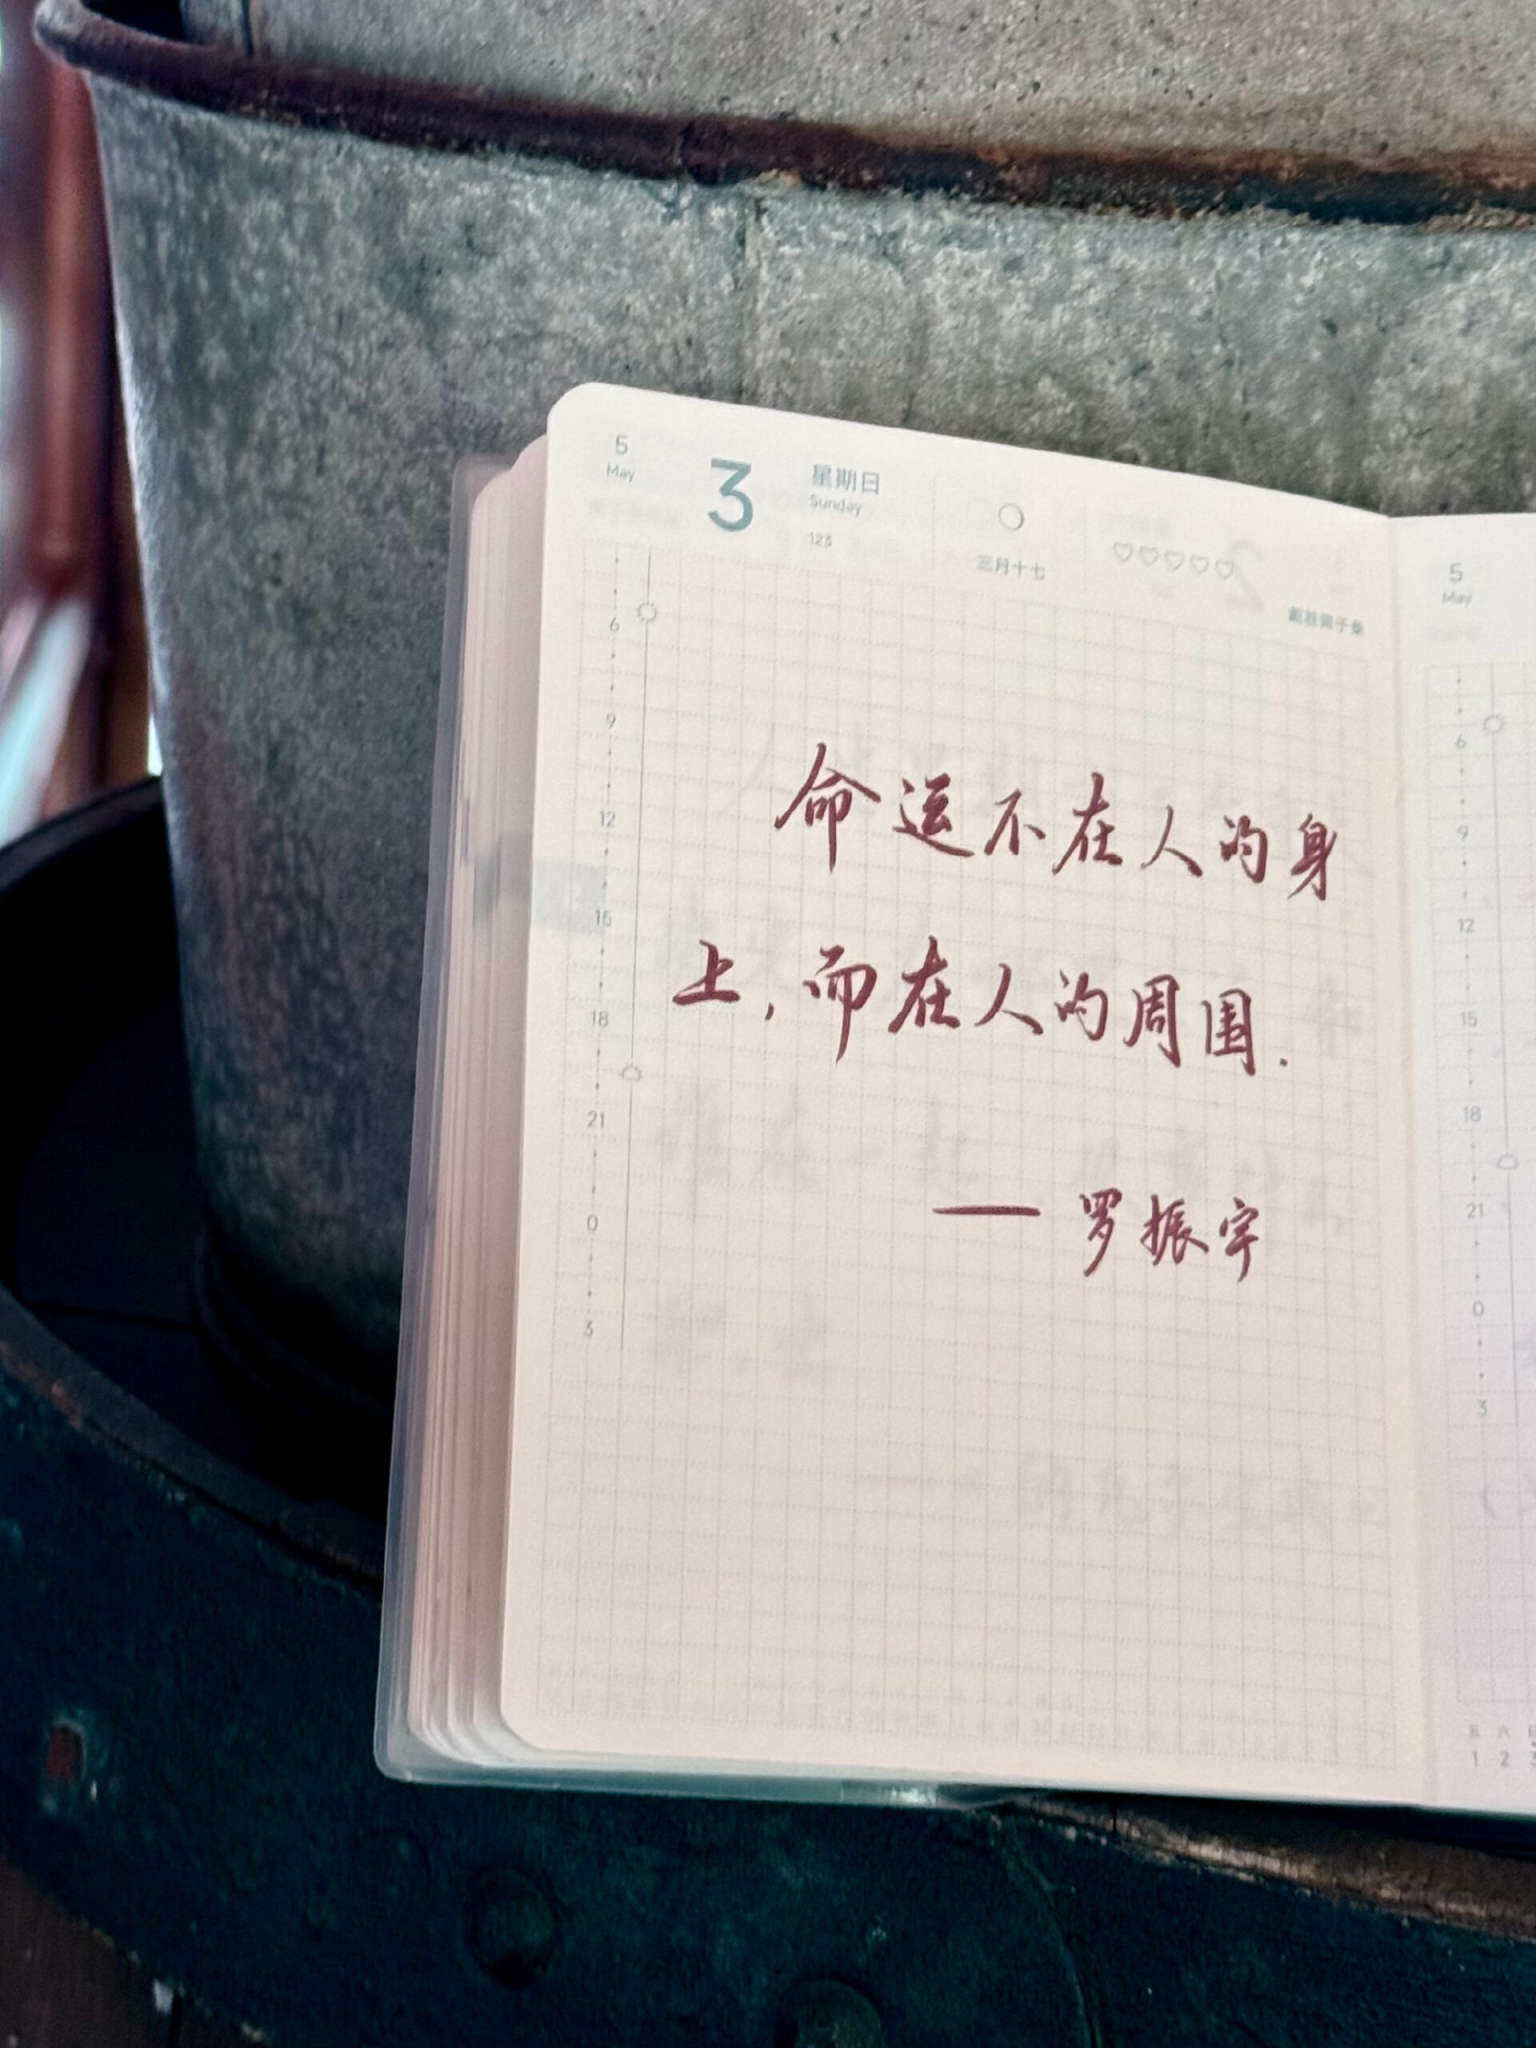 5
May
3
星期日
Sunday
123
三月十七
6
9
12
15
18
21
0
3
命运不在人的身
上，而在人的周围.
—罗振宇
5
May
6
9
12
15
18
21
0
3
五 六 日
1 2 3